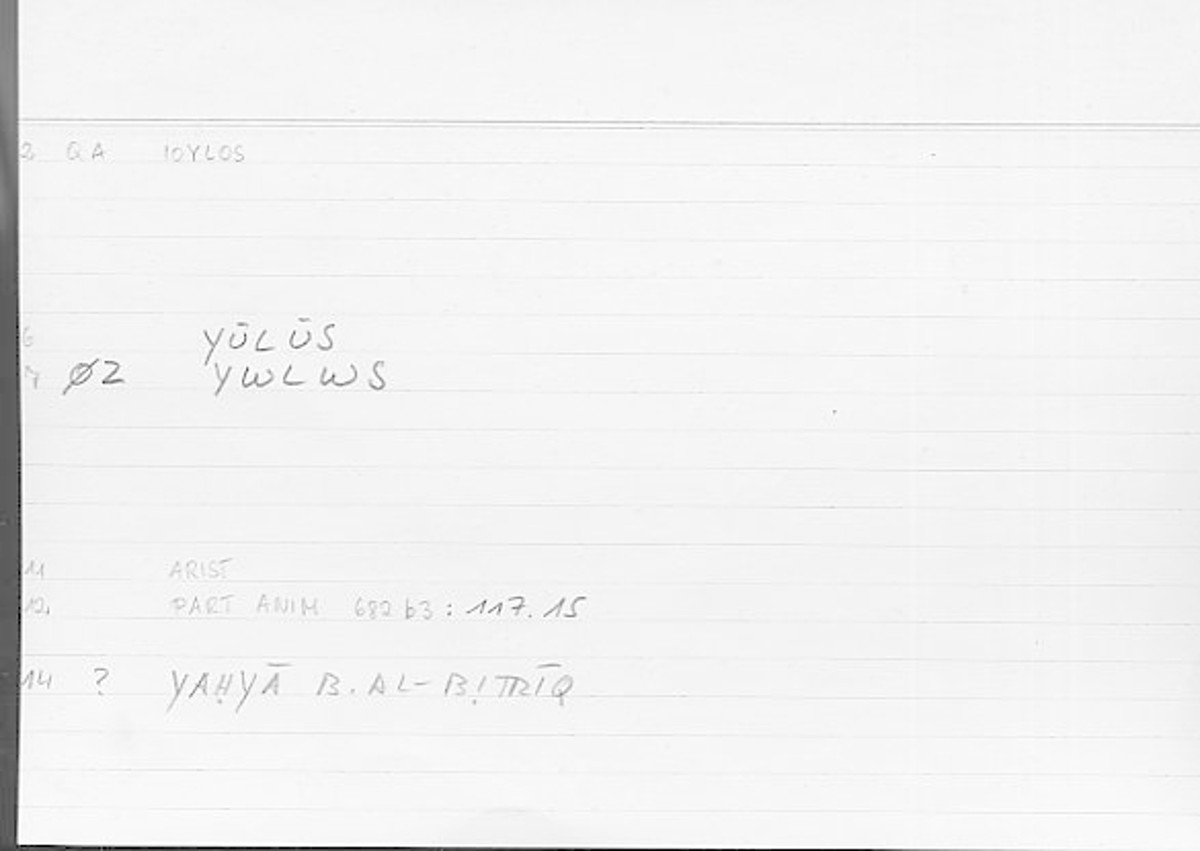 3 QA IOYLOS
6 YŪLŪS
7 Ø2 YWLWS
11 ARIST
12. PART ANIM 682 b3 : 117.15
14 ? YAḤYĀ B. AL-BIṬRĪQ